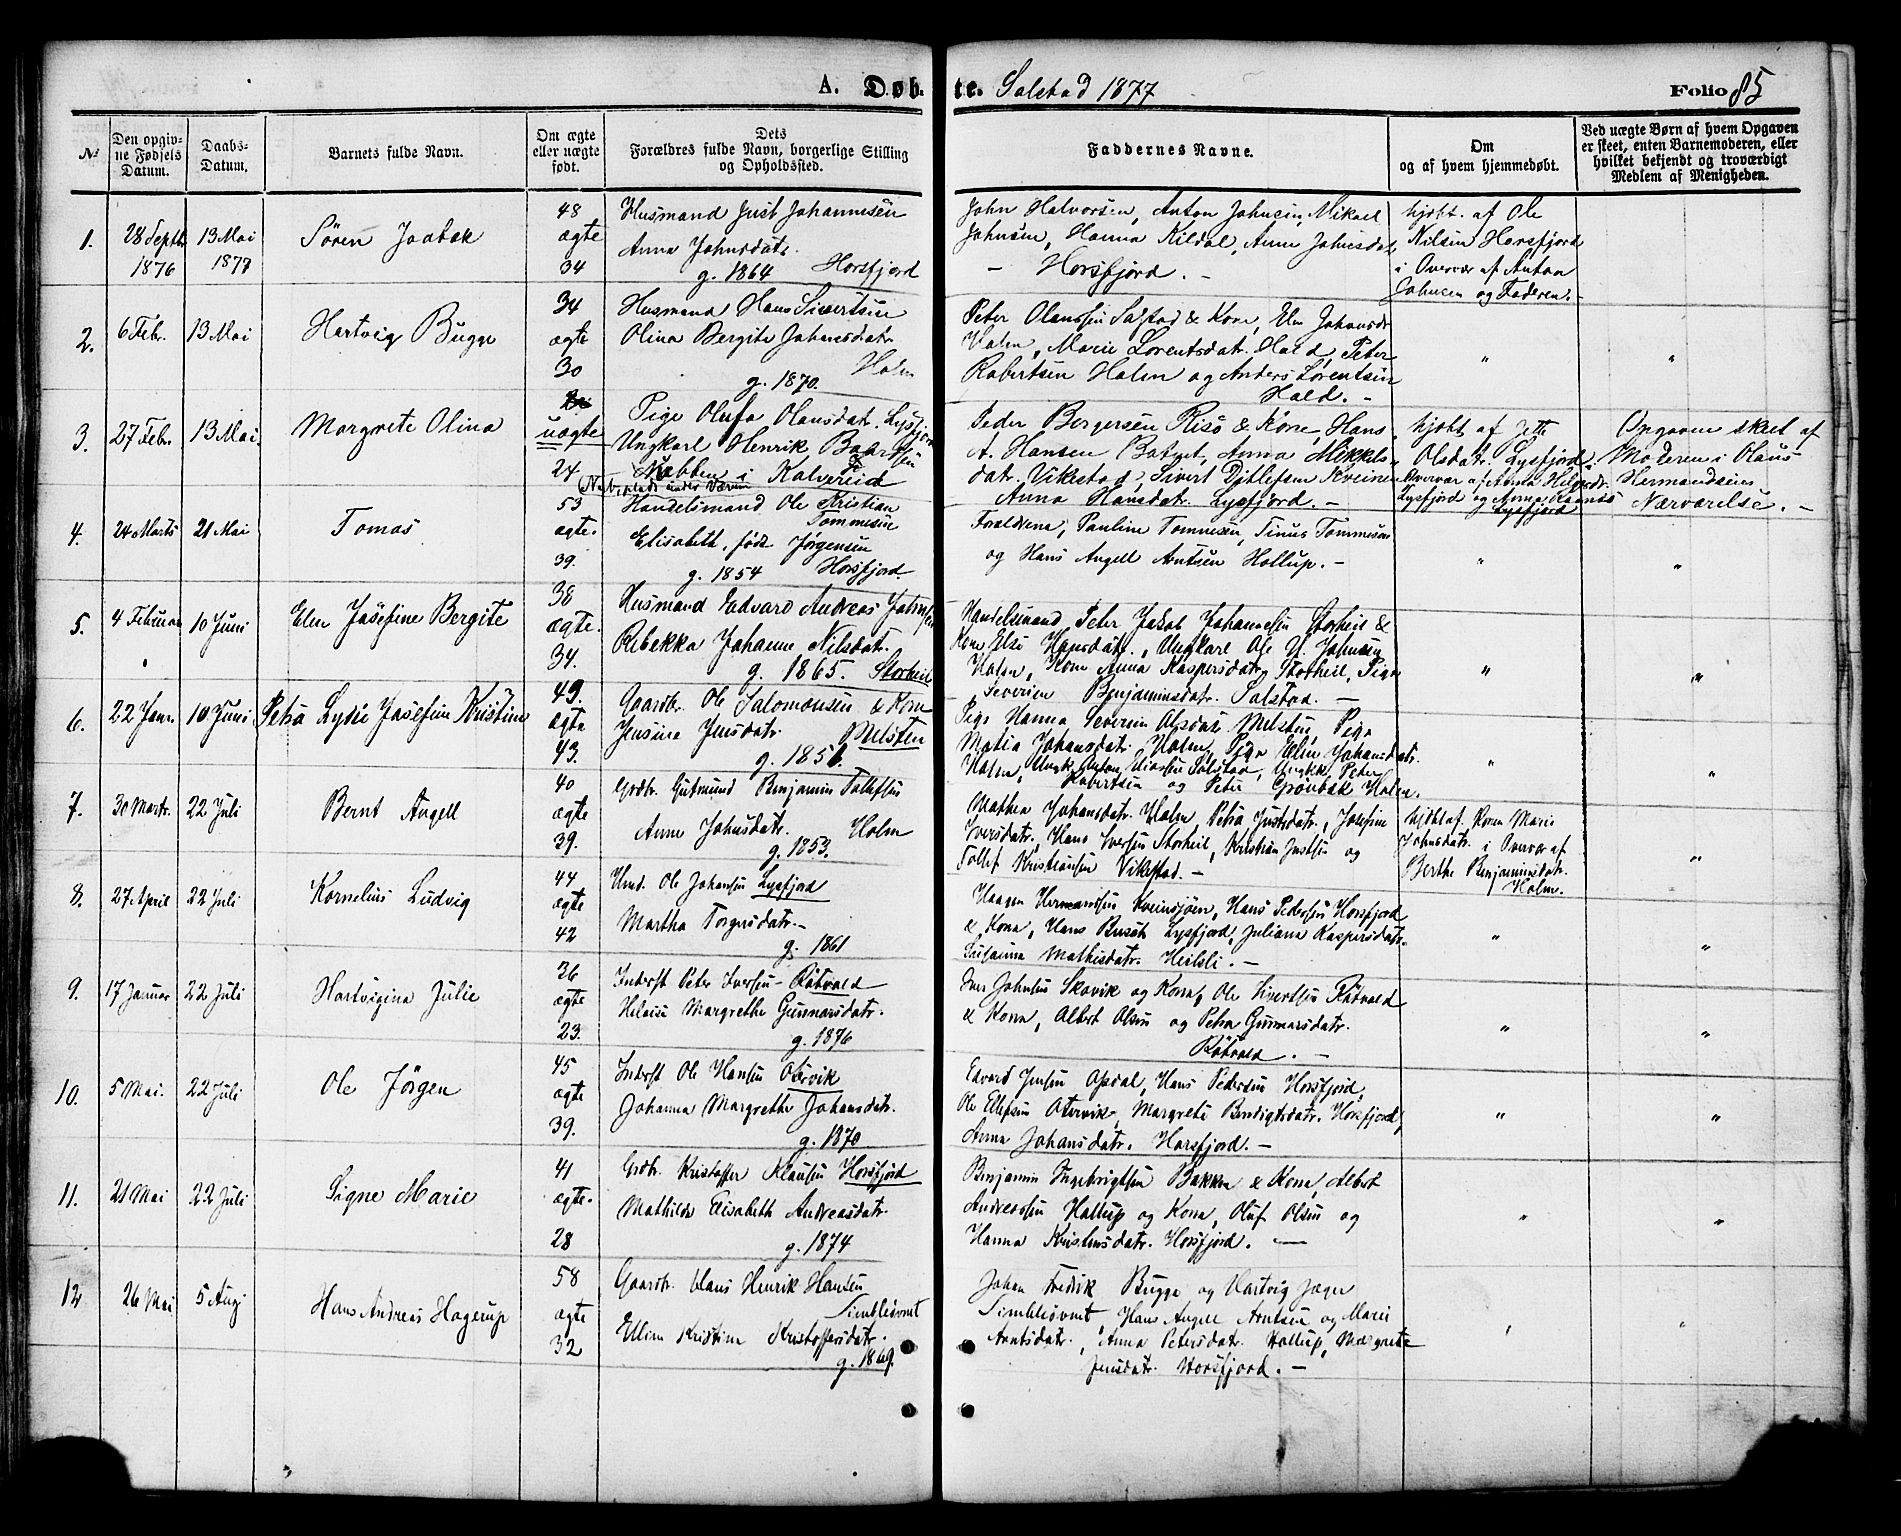 A. Døbte. Solstad 1877 Folio 85
№
Den opgivne Fødsels Datum.
Daabs-Datum.
Barnets fulde Navn.
Om ægte eller uægte født.
Dets Forældres fulde Navn, borgerlige Stilling og Opholdssted.
Faddernes Navne.
Om og af hvem hjemmedøbt.
Ved uægte Børn af hvem Opgaven er skeet, enten Barnemoderen, eller hvilket bekjendt og troværdigt Medlem af Menigheden.
1. 28 Septbr 1876 13 Mai 1877 Sören Jaabæk
48 ægte 34
Husmand Just Johannesen
Anna Johnsdatr.
g. 1864 Horsfjord
John Halvorsen, Anton Johnsen, Mikael
Johnsen, Hanna Kildal, Anne Johnsdatr
- Horsfjord. -
hjdbt. af Ole
Nilsen Horsfjord
i Overvær af Anton
Johnsen og Faderen. -
2. 6 Febr. 13 Mai Hartvig Bugge
34 ægte 30
Husmand Hans Sivertsen
Olina Bergite Johansdatr
Holm
g. 1870.
Peter Olaussen Solstad & Kone, Elen Johansdr
Holm, Marie Lorentsdatr. Hald, Peter
Robertsen Holm og Anders Lorentsen
Hald. -
" "
3. 27 Febr. 13 Mai Margrete Olina
uægte 24
Pige Olufa Olausdatr. Lysfjord
Ungkarl Henrik Baardsen
Nabben i Kalvereid
Peder Borgersen Risö & Kone, Hans
A. Hansen Batnet, Anna Mikkels-
datr. Vikestad, Sivert Ditlefsen Kveine
Anna Hansdatr. Lysfjord. -
hjdbt af Jette
Olsdatr. Lysfjord i
Overvær af Anna
Lysfjord og Anna
Lysfjord
Opgaven skeet af
Moderen i Olaus
Hermandsens
Nærværelse. -
4. 24 Marts 21 Mai Tomas
53 ægte. 39.
Handelsmand Ole Kristian
Tommesen
Elisabeth, födt Jörgensen
g. 1854 Horsfjord.
Forældrene, Pauline Tommesen, Tinus Tommesen
og Hans Angell Arntsen Hollup. -
" "
5. 4 Februar 10 Juni Elen Jösefine Bergite
38 ægte. 34.
Husmand Edvard Andreas Johnsen
Rebekka Johanne Nilsdatr.
g. 1865. Storheil
Handelsmand Peter Jakob Johannesen Storheil &
Kone Else Hansdatr., Ungkarl Ole N. Johnsen
Holm, Kone Anna Kaspersdatr Storheil, Pige
Severine Benjaminsdatr. Solstad. -
" "
6. 22 Janr. 10 Juni Petra Lydie Jösefine Kristine
49. ægte 43.
Gaardbr. Ole Salomonsen & Kone
Jensine Jensdatr. Melsten
g. 1856.
Pige Hanna Severine Opdal Melsten, Pige
Matia Johansdatr. Holm, Pige Elen Johansdatr.
Holm, Ungk. Anton Solstad, Ungkk. Peter
Robertsen og Peter Grönbæk Holm.
" "
7. 30 Marts. 22 Juli Bernt Angell
40 ægte 39.
Grdbr. Gutmund Benjamin Tollefsen
Anne Johnsdatr. Holm
g. 1853.
Mathea Johansdatr. Holm, Petra Justsdatr., Josefine
Iversdatr., Hans Iversen Storheil, Kristian Justsen og
Tollef Kristiansen Vikestad. -
hjdbt af. Karen Marie
Johnsdatr. i Overvær af
Berthe Benjaminsdatr.
Holm.
"
8. 27 April 22 Juli Kornelius Ludvig
44 ægte 42
Hmd. Ole Johansen Lysfjord
Martha Torgersdatr. -
g. 1861
Haagen Hermandsen Kveinsjöen, Hans Pedersen Horsfjord
& Kone, Hans Busch Lysfjord, Juliana Kaspersdatr.
Susanna Mathisdatr. Heilsli. -
" "
9. 17 Januar 22 Juli Hartvigina Julie
36 ægte 23.
Inderst Peter Iversen Råtvold
Heloise Margrethe Gunnarsdatr.
g. 1876
Iver Johnsen Skavik og Kone, Ole Sivertsen Råtvold
& Kone, Albert Olsen og Petra Gunnarsdatr.
Råtvold. -
" "
10. 5 Mai. 22 Juli Ole Jörgen
45 ægte 39.
Inderst Ole Hansen Otervik
Johanna Margrethe Johansdatr.
g. 1870
Edvard Jensen Opdal, Hans Pedersen Horsfjord,
Ole Ellefsen Otervik, Margrete Bendigtsdatr. Horsfjord,
Anna Johansdatr. Horsfjord. -
" "
11. 21 Mai 22 Juli Signe Marie
41 ægte. 28
Grdbr. Kristoffer Klausen Horsfjord
Mathilde Elisabeth Andreasdatr.
g. 1874
Benjamin Ingebrigtsen Bakken & Kone, Albert
Andreassen Hollup og Kone, Oluf Olsen og
Hanna Kristensdatr. Horsfjord. -
" "
12 26 Mai 5 Aug Hans Andreas Hagerup
58 ægte 32
Gaardbr. Klaus Henrik Hansen
Simblesövnet
Elline Kristine Kristoffersdatr.
g. 1869.
Johan Fredrik Bugge og Hartvig Jæger
Simblesövnet, Hans Angell Arntsen og Marie
Arntsdatr., Anna Petersdatr. Hollup, Margrete
Jensdatr. Horsfjord. -
" "